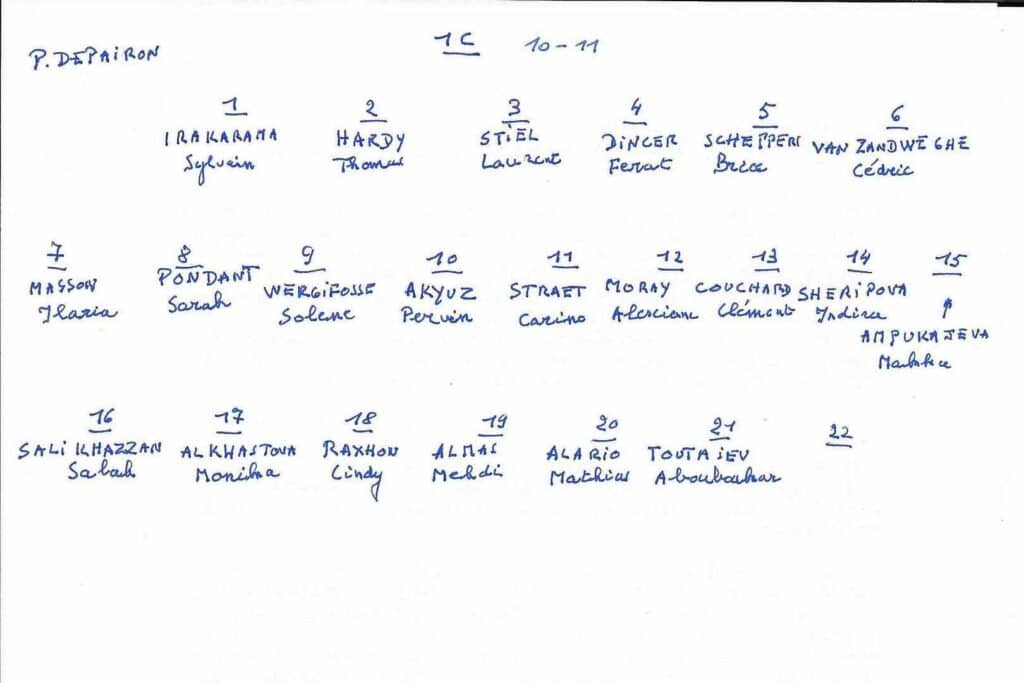 P. DEPAIRON 1C 10-11
1 2 3 4 5 6
IRAKARAMA HARDY STIEL DINCER SCHEPPERS VAN ZANDWEGHE
Sylvain Thomas Laurent Ferat Brice Cédric
7 8 9 10 11 12 13 14 15
MASSON PONDANT WERGIFOSSE AKYUZ STRAET MORAY COUCHARD SHERIPOVA
Ilaria Sarah Solene Pervin Carino Clément Indira
AMPUKAJEVA
16 17 18 19 20 21 22
SALI KHAZZAN ALKHASTOVA RAXHON ALMAS ALARIO TOUTAIEV
Sabah Monika Cindy Mehdi Mathias Aboubakar